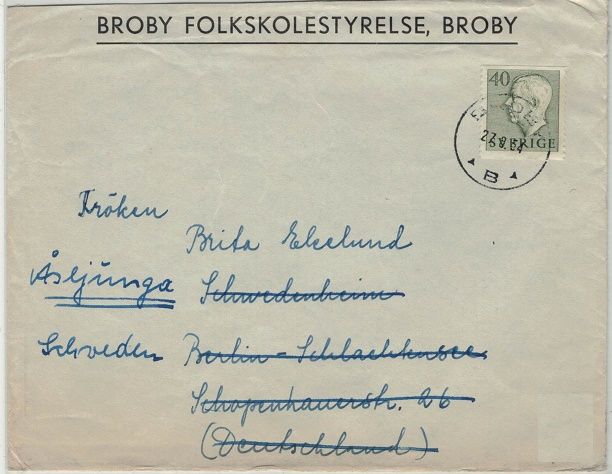 BROBY FOLKSKOLESTYRELSE, BROBY
40
SVERIGE
B
Fröken
Brita Ekelund
Åsljunga Schwedenheim
Schweden Berlin-Schlachtensee
Schopenhauerstr. 26
(Deutschland)